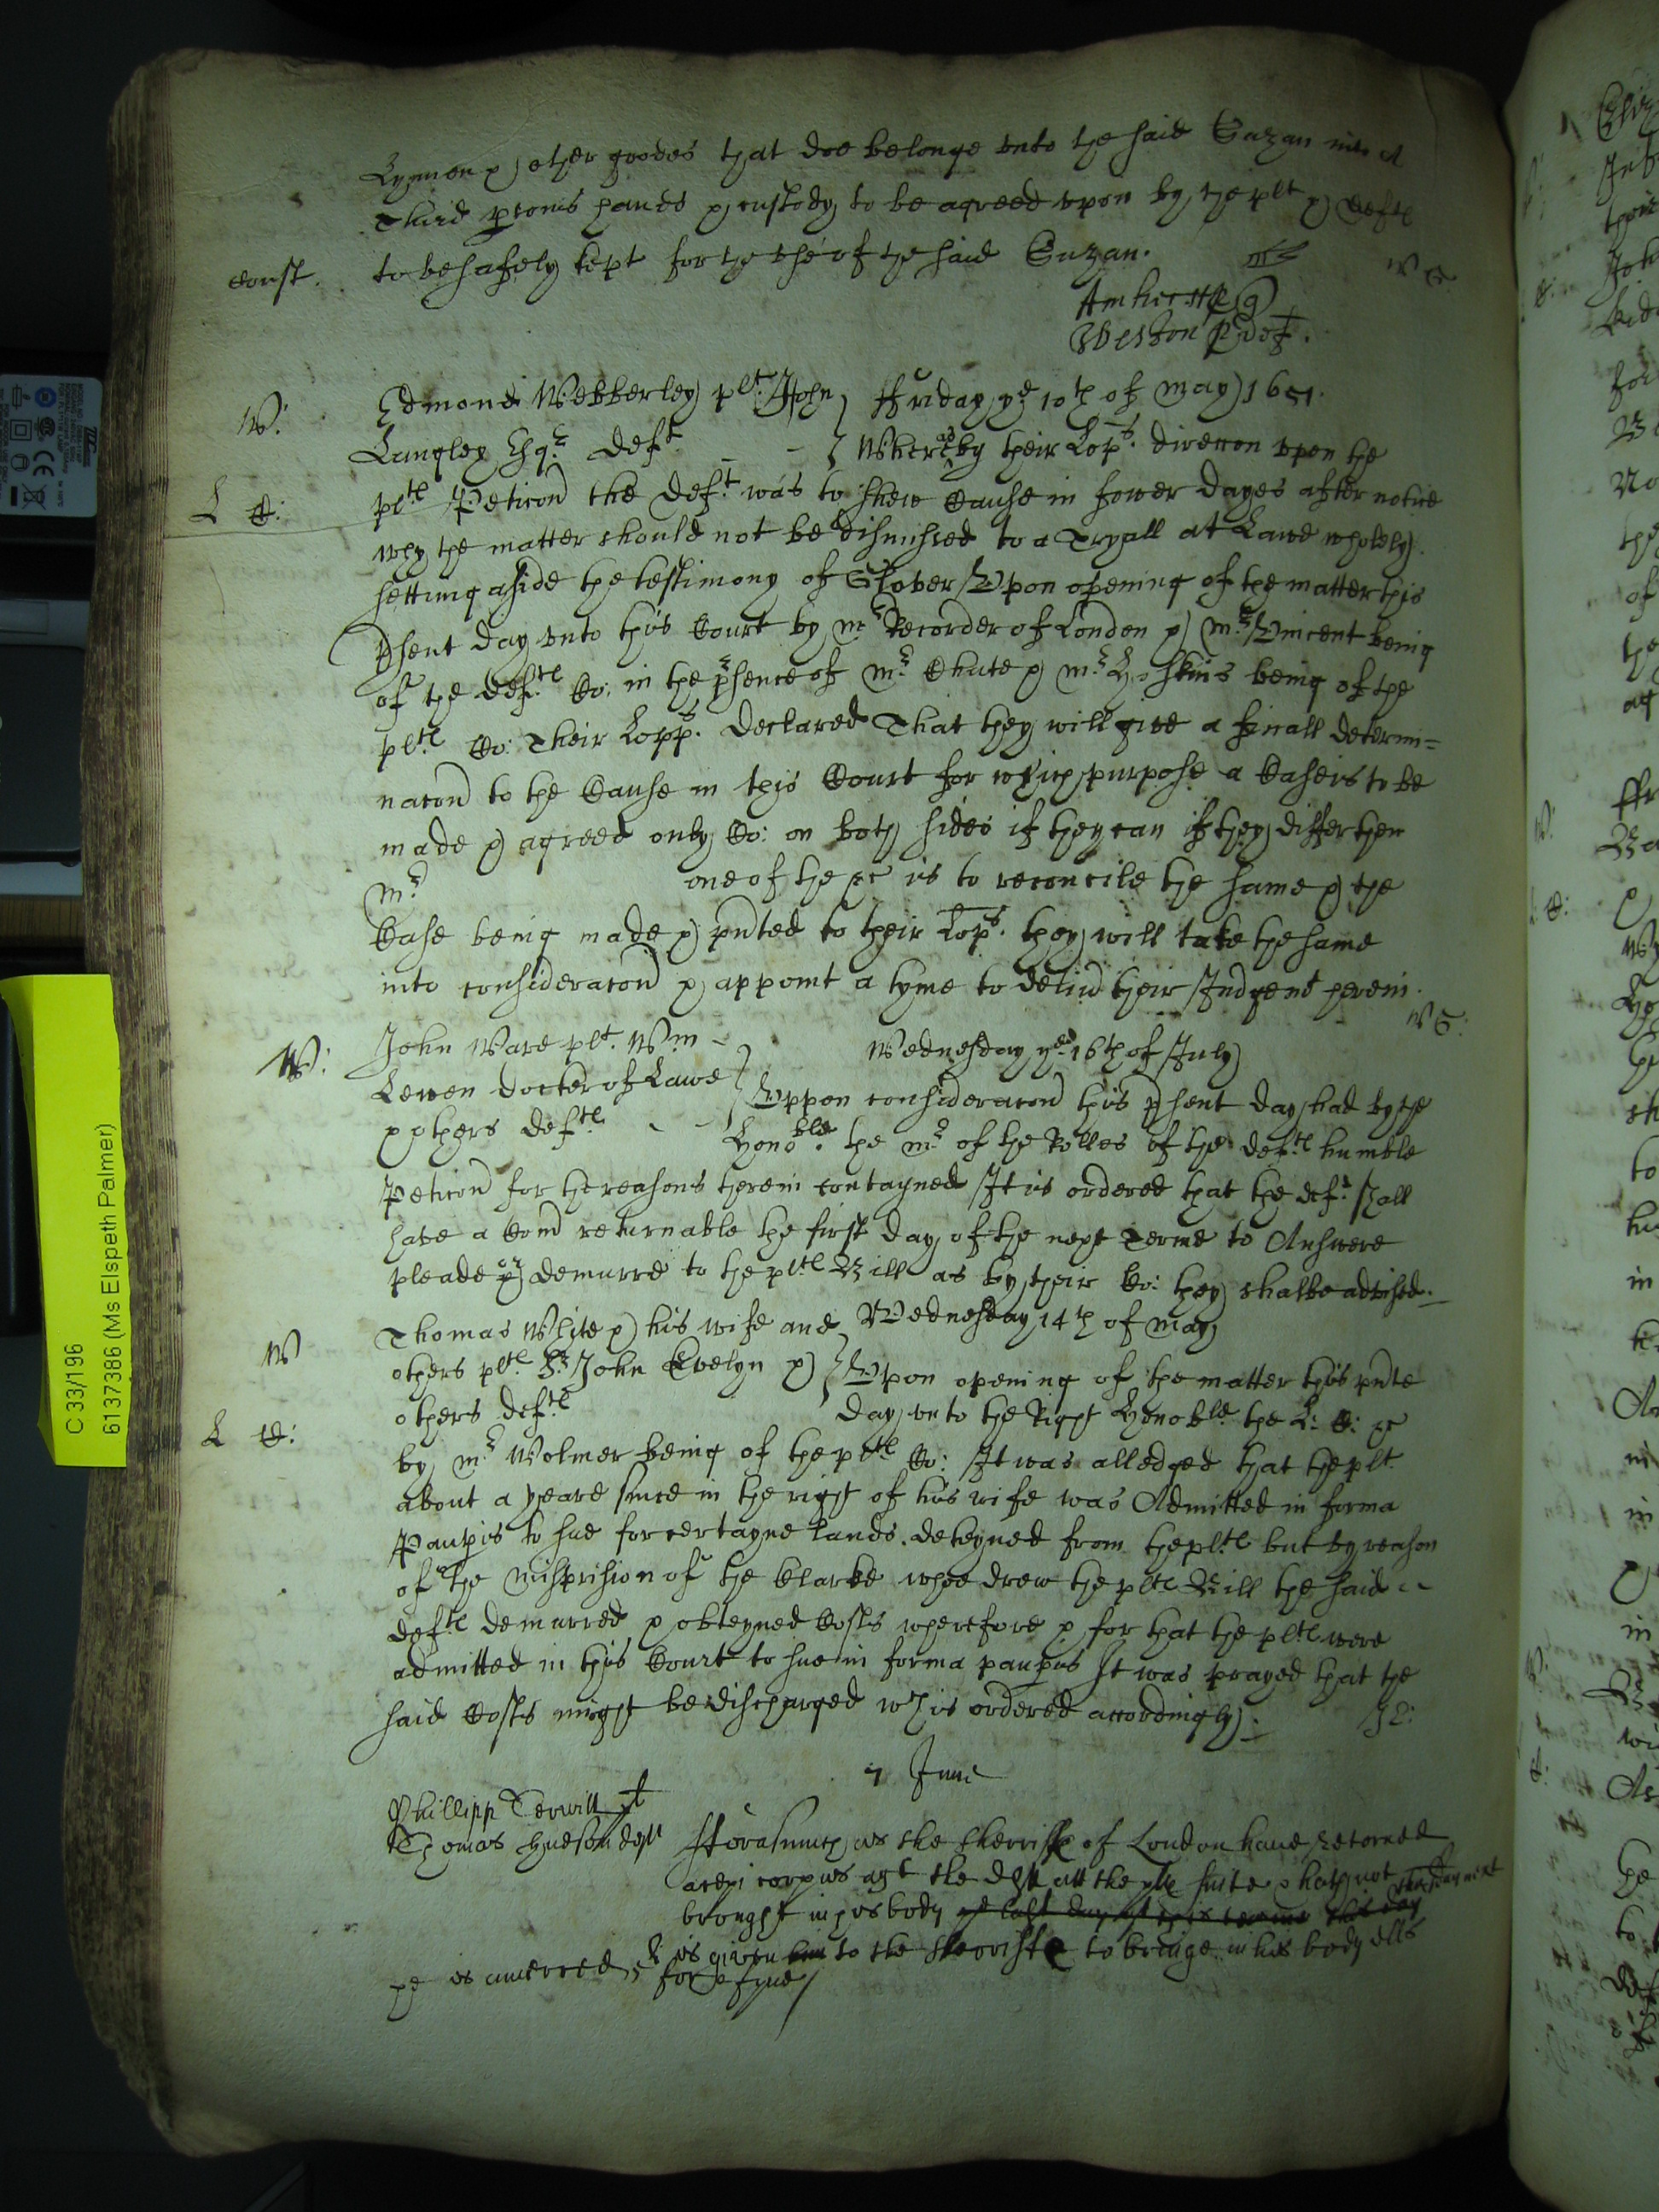 Lynnen & other goodes that doe belonge unto the said Suzan into a
Third psons hands & custody to be agreed upon by the plt & deftes
const. to be safely kept for the use of the said Suzan.
W S.
Amherst
Weston p def.
W: Edmond Webberley plt. John Friday ye 10th of May 1651.
Langley Esqr. deft. - - Whereas by their Lopps. direccon upon the
L C: pltes Peticon the deft was to shew Cause in fower dayes after notice
why the matter should not be dismissed to a Tryall at Lawe wholely
setting aside the testimony of Glover Upon opening of the matter this
psent day unto this Court by mr Recorder of London & mr Vincent being
of the deftes Co: in the psence of mr Chute & mr Hoskins being of the
pltes Co: Their Lopps. declared That they will give a finall determi=
nacon to the Cause in this Court for which purpose a Case is to be
made & agreed only Co: on both sides if they can if they differ then
mr one of the &c is to reconcile the same & the
Case being made & pnted to their Lopps. they will take the same
into consideracon & appoint a tyme to deliu their Judgent herein.
W S:
W: John Ware plt. Wm - Wednesday ye 16th of July
Lewen doctor of Lawe Uppon consideracon this psent day had by the
& others deftes - - Honoble. the mr of the Rolles of the deftes humble
Peticon for the reasons therein contayned It is ordered that the deft. shall
have a Comd returnable the first day of the next Terme to Answere
pleade or demurre to the pltes Bill as by their Co: they shalbe advised.
W Thomas White & his wife and Wednesday 14th of May
others pltes Sr. John Evelyn & Upon opening of the matter this pnte
others deftes day unto the Right Honoble. the L: C: &c
L C: by mr Wolmer being of the pltes Co: It was alledged that the plt.
about a yeare since in the right of his wife was Admitted in forma
Paupis to sue for certayne lands deteyned from the pltes but by reason
of the misprision of the Clarke whoe drew the pltes Bill the said
deftes demurred & obteyned Costs wherefore & for that the pltes were
admitted in this Court to sue in forma paupis It was prayed that the
said Costs might be discharged wch is ordered accordingly.
7 June
Phillipp Terwitt plt
Thomas Hudson deft Forasmuch as the sherriffe of London have retorned
a cepi corpus agt the deft att the pltes suite & hath not
brought in his body ye last day of this terme this day
he is amerced 5 li is given to the sherriffe to bringe in his body ells
for a fyne
C 33/196
6137386 (Ms Elspeth Palmer)